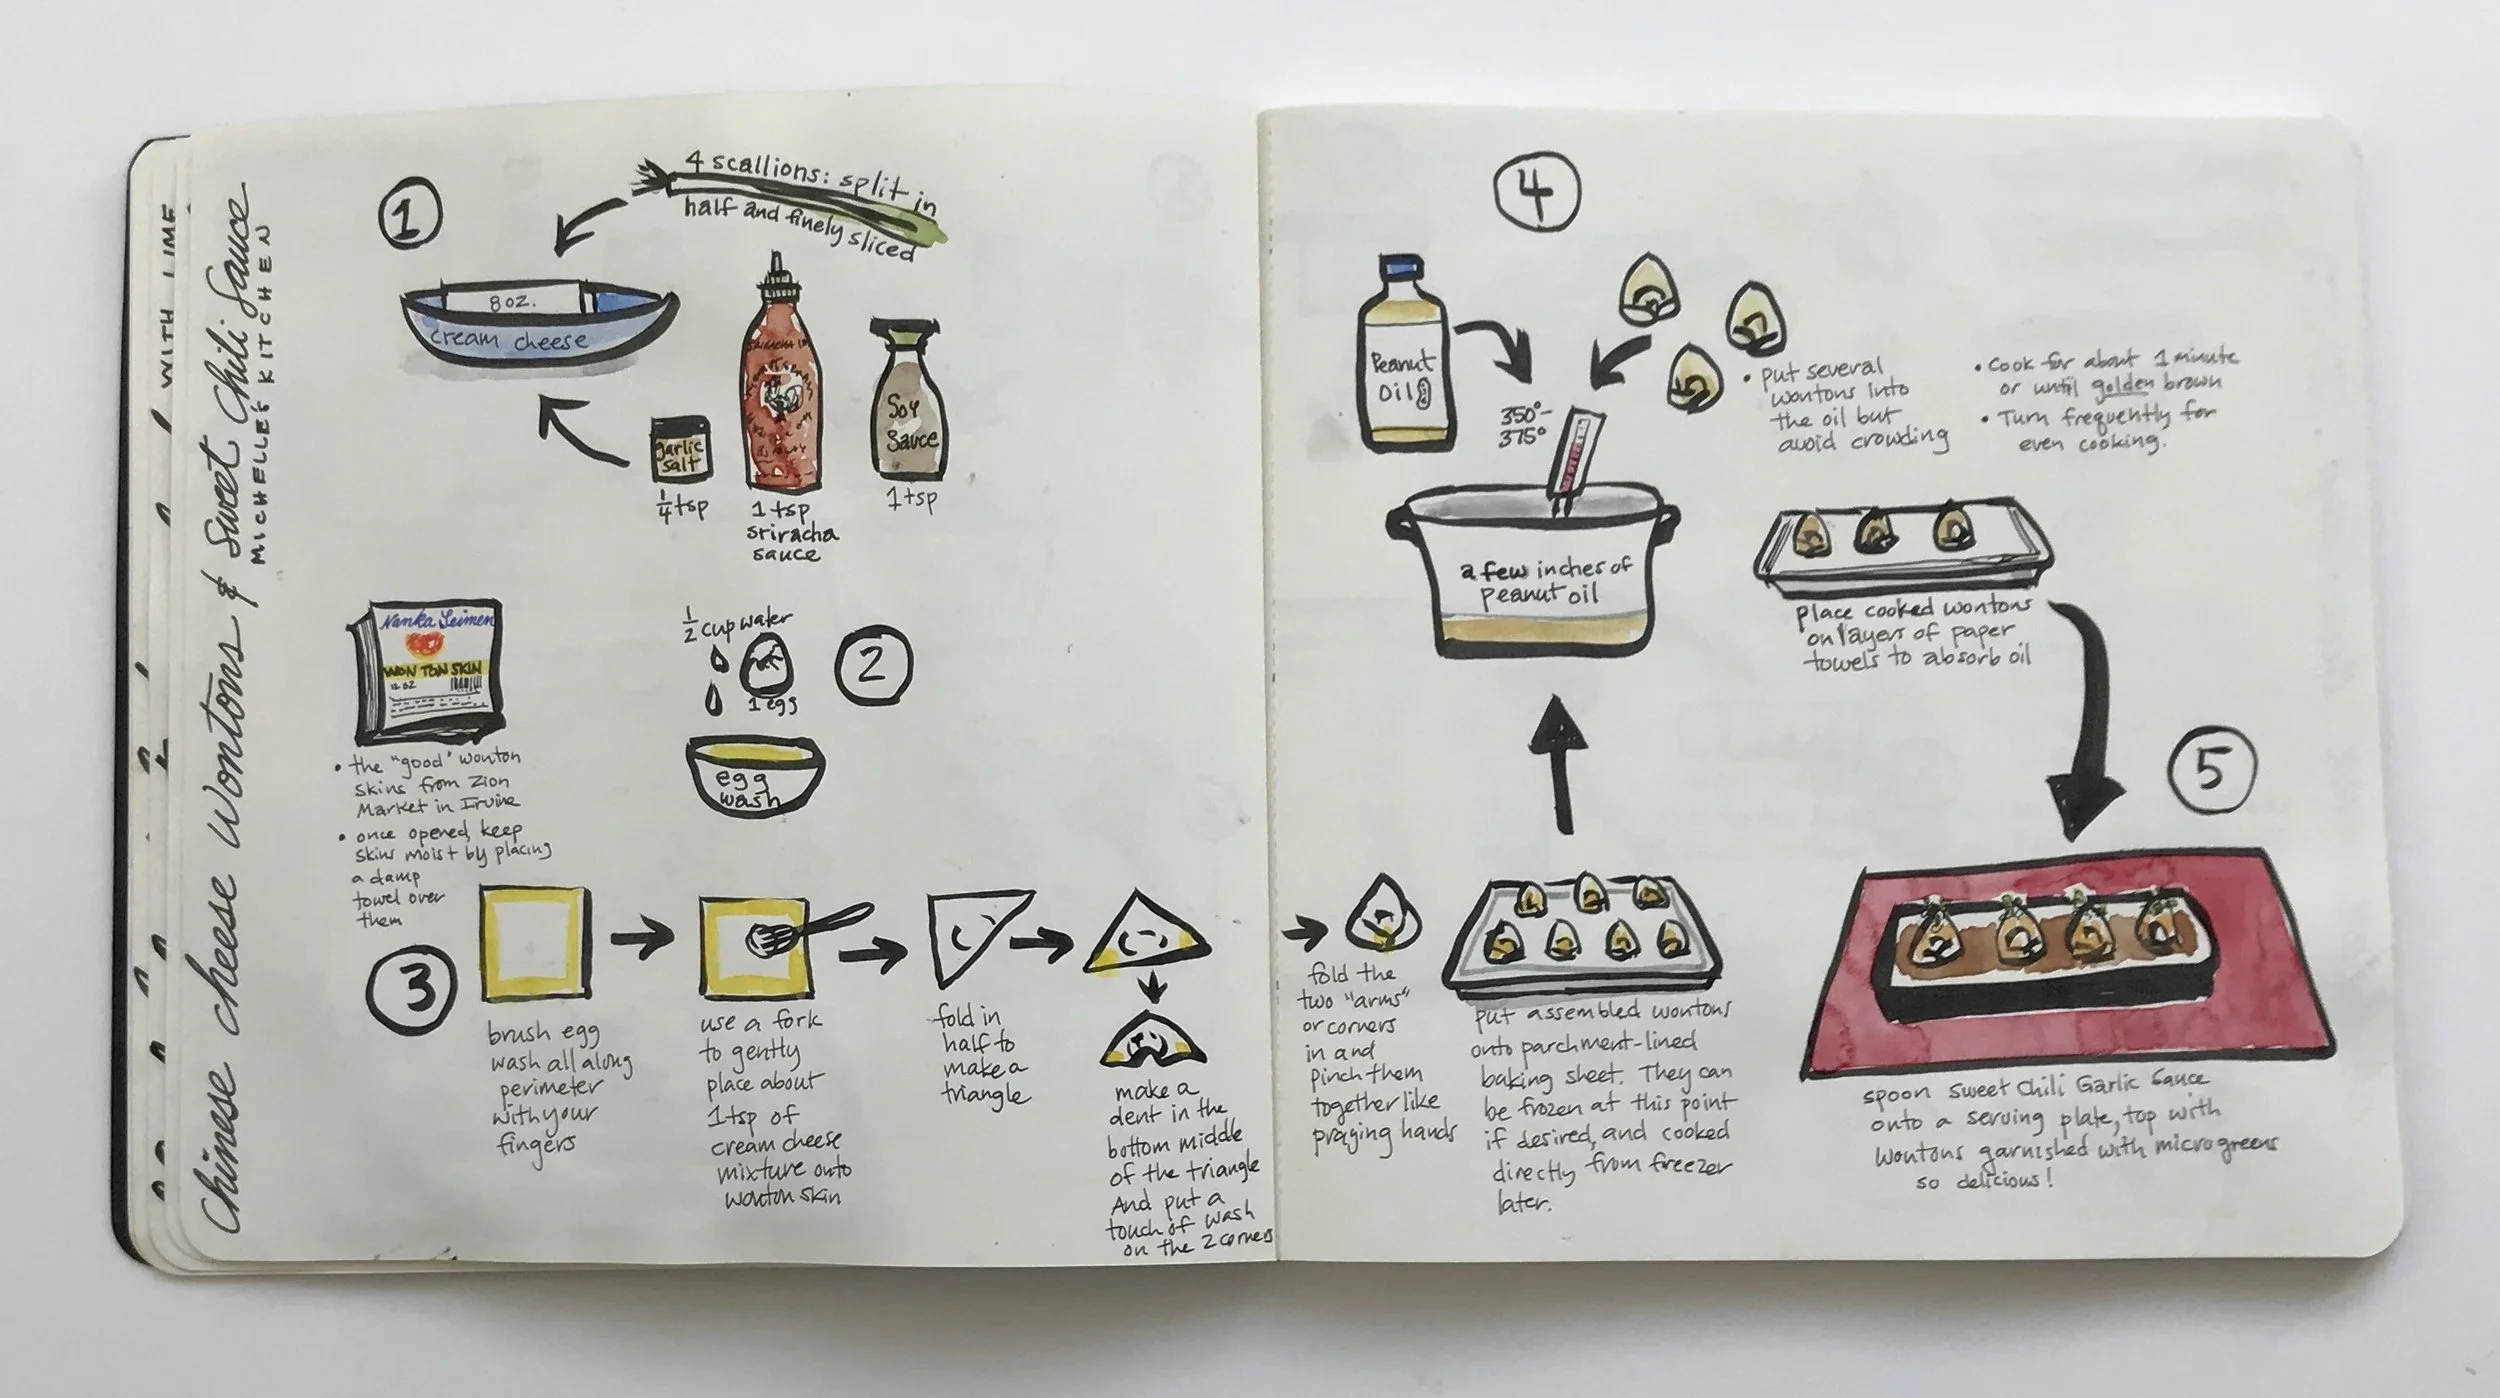 WITH LIME
Chinese cheese wontons & Sweet Chili Sauce
MICHELLE'S KITCHEN
1
4 scallions: split in
half and finely sliced
8 oz.
cream cheese
garlic
salt
1/4 tsp
1 tsp
sriracha
sauce
Soy
Sauce
1 tsp
Nanka Seimen
WON TON SKIN
12 OZ
• the "good" wonton
skins from Zion
Market in Irvine
• once opened, keep
skins moist by placing
a damp
towel over
them
1/2 cup water
1 egg
egg
wash
2
3
brush egg
wash all along
perimeter
with your
fingers
use a fork
to gently
place about
1 tsp of
cream cheese
mixture onto
wonton skin
fold in
half to
make a
triangle
make a
dent in the
bottom middle
of the triangle
And put a
touch of wash
on the 2 corners
fold the
two "arms"
or corners
in and
pinch them
together like
praying hands
put assembled wontons
onto parchment-lined
baking sheet. They can
be frozen at this point
if desired, and cooked
directly from freezer
later.
4
Peanut
Oil
350°-
375°
• put several
wontons into
the oil but
avoid crowding
• Cook for about 1 minute
or until golden brown
• Turn frequently for
even cooking.
a few inches of
peanut oil
place cooked wontons
on layers of paper
towels to absorb oil
5
spoon Sweet Chili Garlic Sauce
onto a serving plate, top with
wontons garnished with microgreens
so delicious!